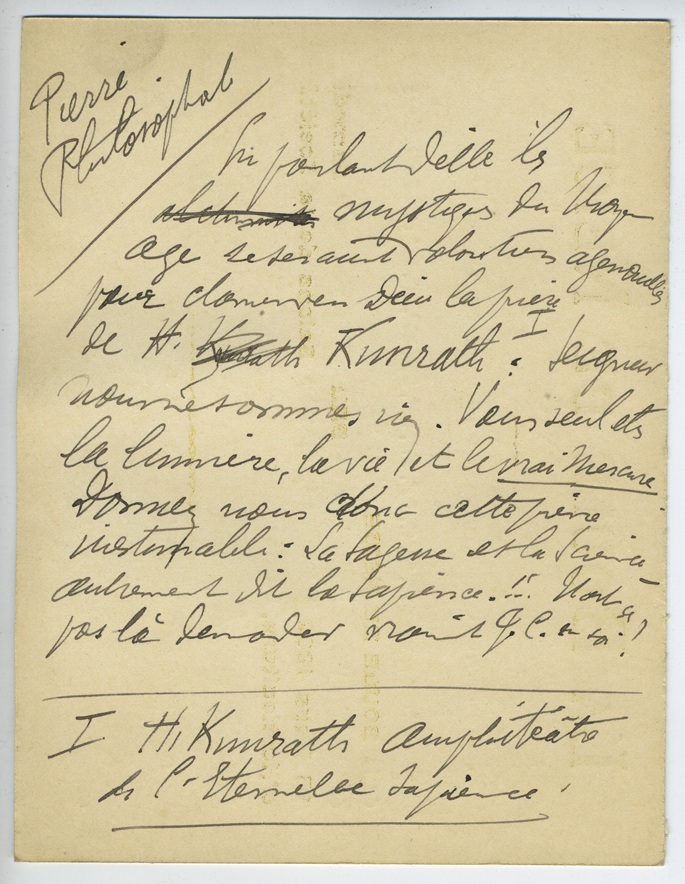 Pierre
Philosophale
En parlant d'elle les
alchimistes mystiques du Moyen
age se seraient volontiers agenouillés
pour clamer vers Dieu la prière
de H. Kunrath Kunrath I : Seigneur
nous ne sommes rien. Vous seul etes
la lumière, la vie et le vrai Mercure
Donnez nous donc cette pierre
inestimable : La Sagesse et la Science
autrement dit la Sapience.!! N'est ce
pas là demander J. C. en soi ?
I H. Kunrath Amphitéâtre
de l'Eternelle Sapience.